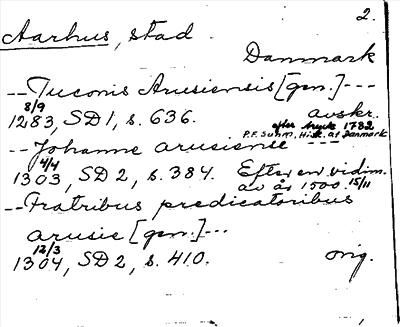 2.
Aarhus, stad
Danmark
-- Tuconis Arusiensis [gen.] ---
8/9
1283, SD 1, s. 636. avskr.
efter tryck 1782
P.F. Suhm, Hist. af Danmark
-- Johanne arusiense ---
4/4
1303, SD 2, s. 384. Efter en vidim.
av år 1500 15/11
-- Fratribus predicatoribus
arusie [gen.] ---
12/3
1304, SD 2, s. 410. orig.